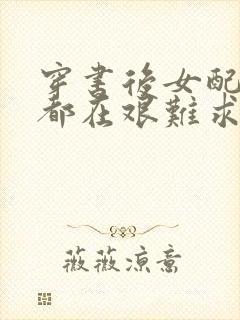 穿書後女配
都在艱難求
薇薇涼意